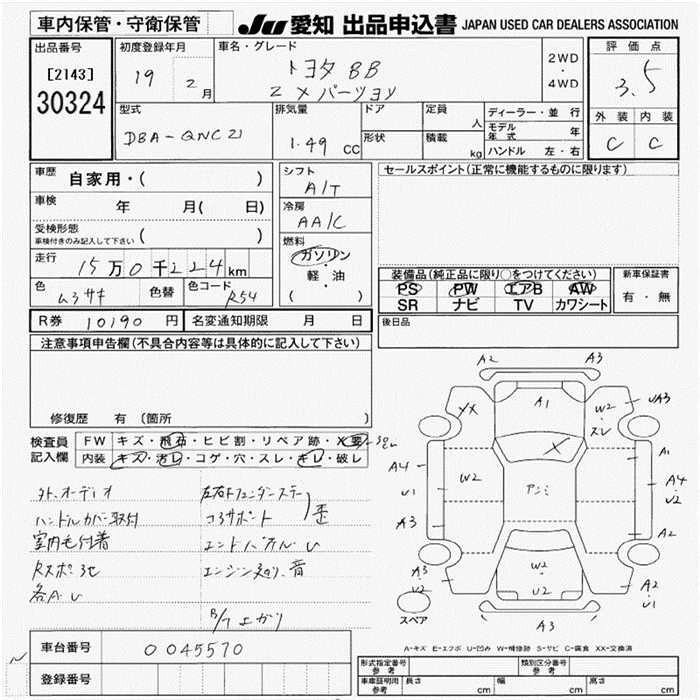 車内保管・守衛保管 JU 愛知 出品申込書 JAPAN USED CAR DEALERS ASSOCIATION
出品番号 初度登録年月 車名・グレード 評価点
[2143] 19 2月 トヨタ BB 2WD・4WD 3.5
30324 Z Xバージョン
型式 排気量 ドア 定員 人 ディーラー・並行 外装 内装
DBA-QNC21 1.49 CC 形状 積載 kg モデル年式 年 C C
ハンドル 左・右
車歴 自家用・( ) シフト A/T セールスポイント(正常に機能するものに限ります)
車検 年 月( 日) 冷房 AA/C
受検形態
車検付きのみ記入して下さい ( ) 燃料
走行 15万0千224km ガソリン
軽・油
( )
装備品(純正品に限り○をつけてください) 新車保証書
色 ムラサキ 色替 色コード R54 PS PW エアB AW 有・無
SR ナビ TV カワシート
R券 10190円 名変通知期限 月 日 後日品
注意事項申告欄(不具合内容等は具体的に記入して下さい)
修復歴 有 (箇所 )
検査員記入欄 FW キズ・飛石・ヒビ割・リペア跡・X要
内装 キズ・汚レ・コゲ・穴・スレ・キレ・破レ
外、オーディオ
ハンドルカバー取付
室内毛付着
Rスポ 3セ
各A、U
左右Fフェンダーステー
コアサポート 歪
エンドパネル U
エンジン 音
B/ エガリ
A2 A3
XX A1 W2 スレ UA3
X
A4 U1 A3 W2 アンミ A1 A4 U2 A2
A3 U2 W2 W2 U2 A2 U1
スペア A3
A-キズ E-エクボ U-凹み W-補修跡 S-サビ C-腐食 XX-交換済
車台番号 0045570
登録番号
形式指定番号 参考 類別区分番号 参考
車庫証明用 参考 長さ cm 幅 cm 高さ cm